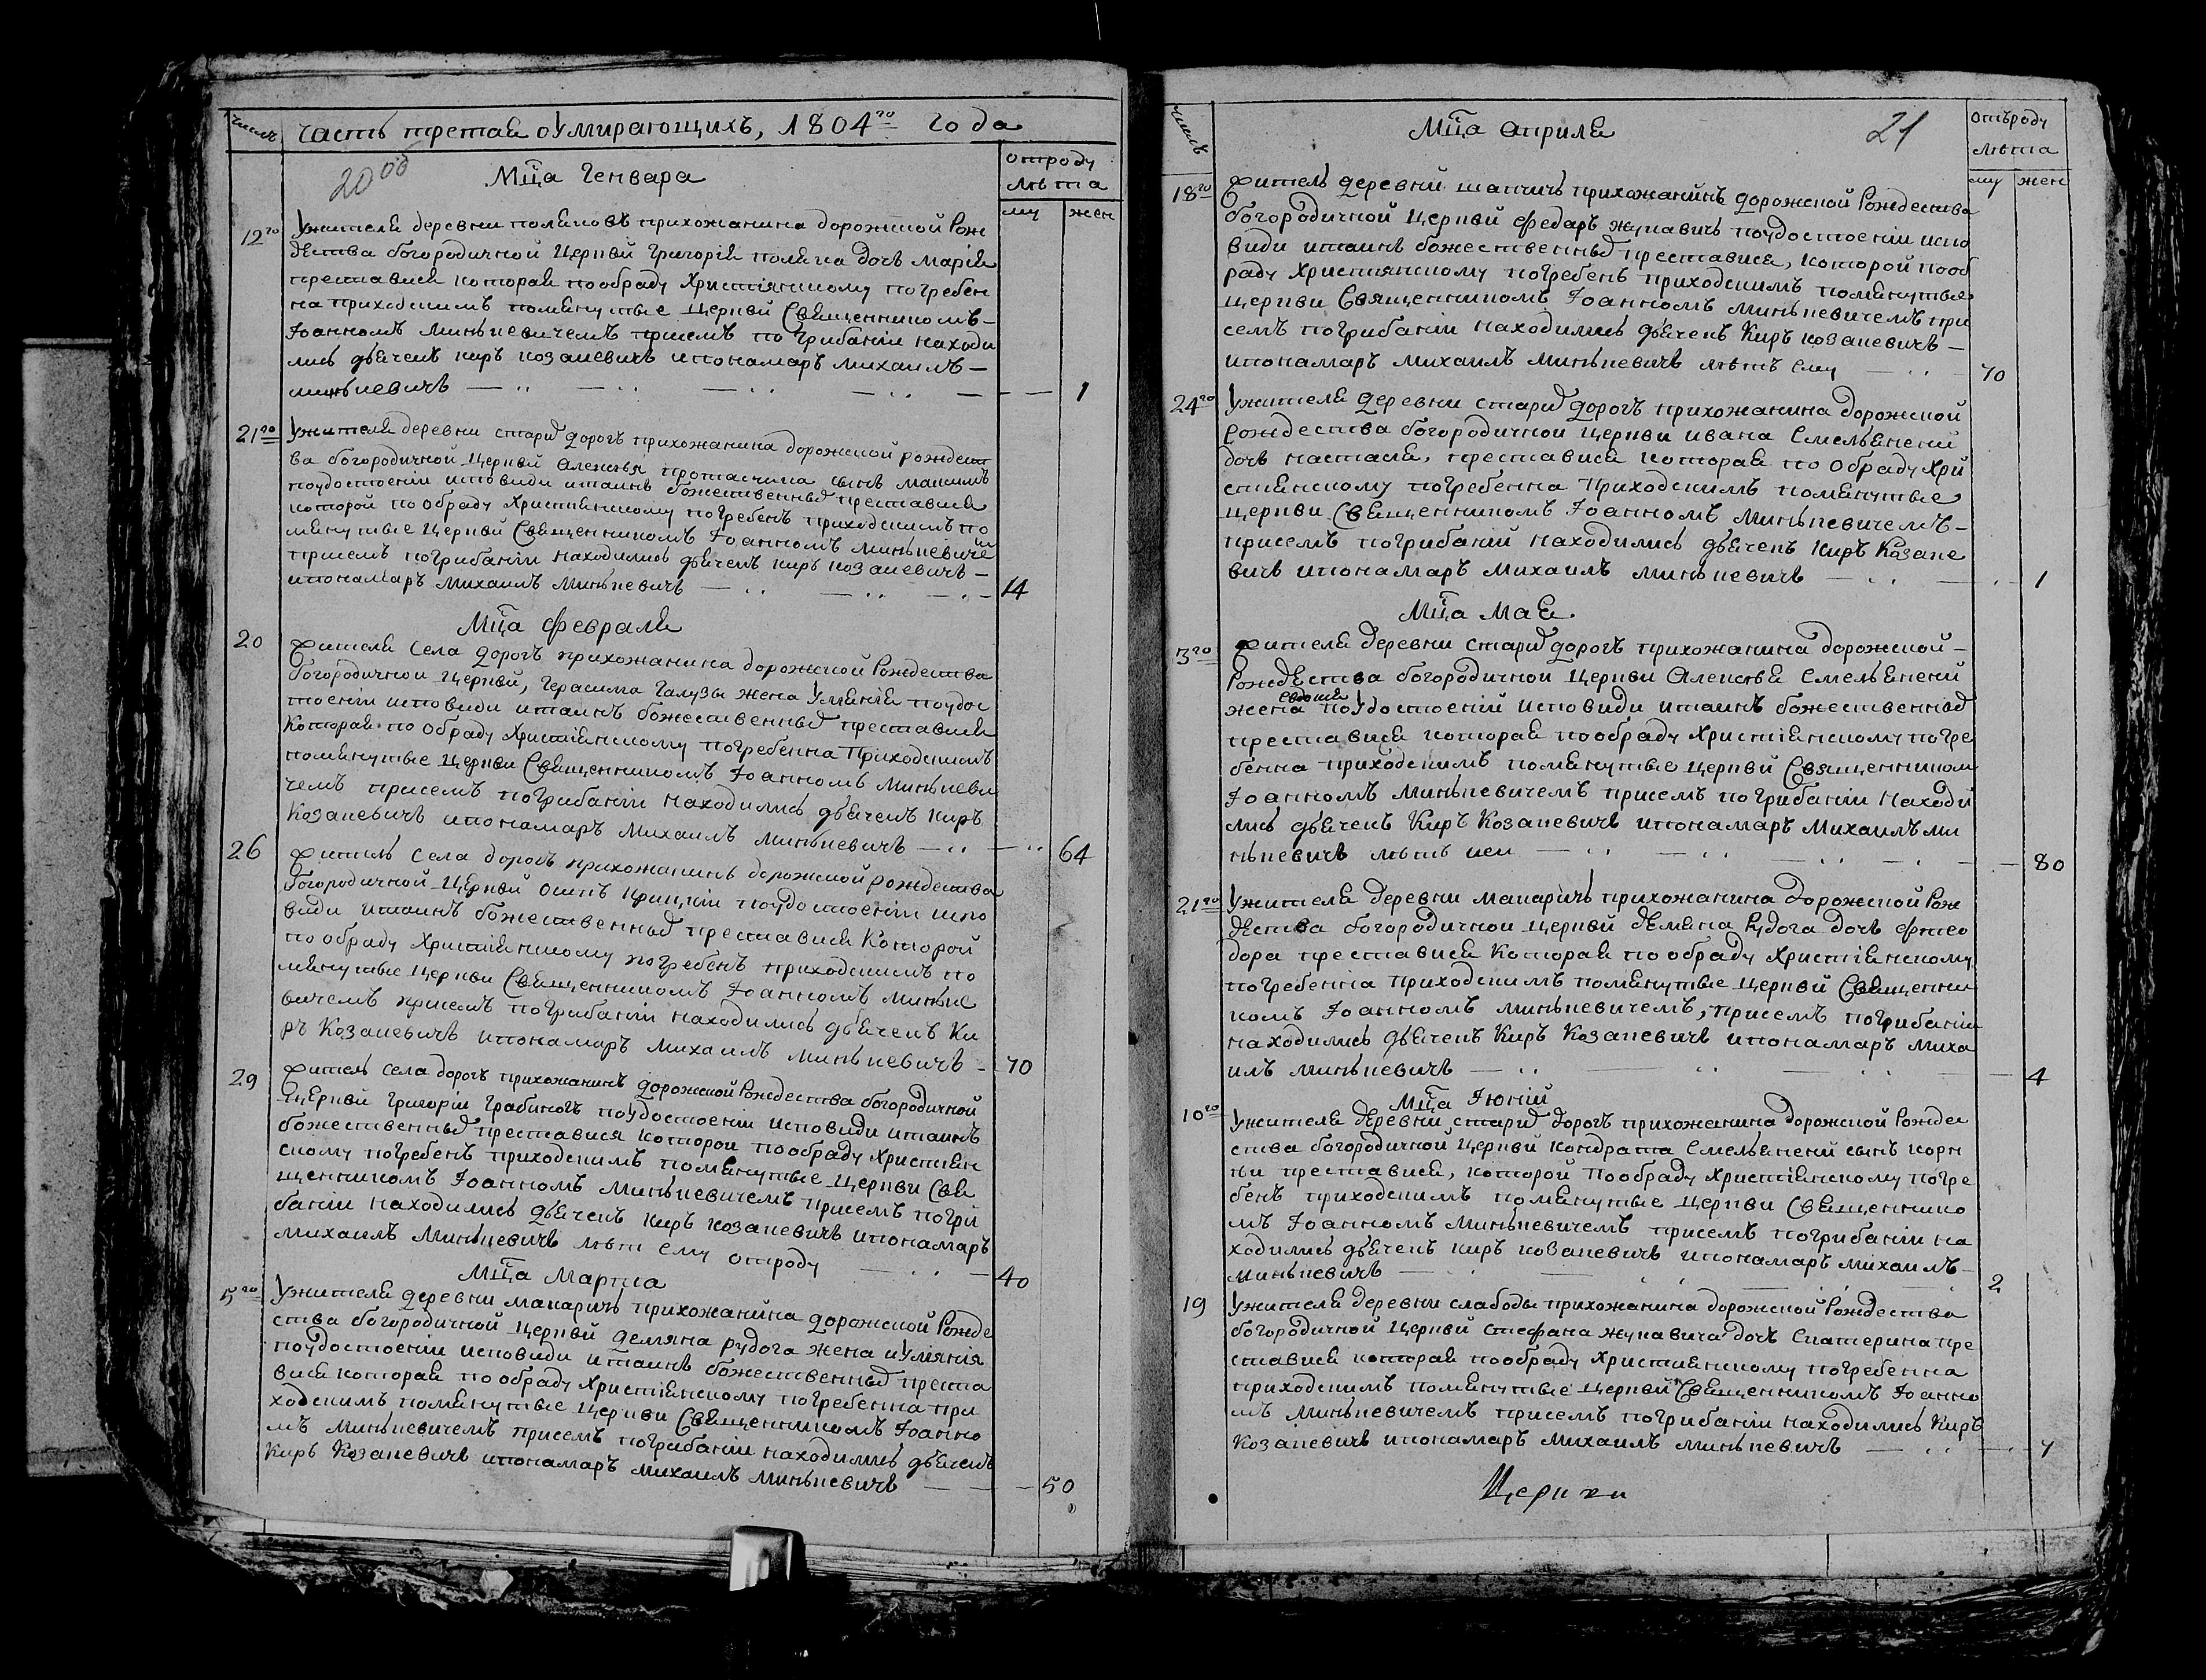 числъ
часть третая оумирающихъ, 1804го года
20об
Мца Генваря
отроду
лѣта
му жен
12го Ужителя деревни поляновъ прихожанина дорожской Рож
дества богородичной Церкви Григорія поляна дочь Марія
преставися которая пообряду Христіянскому погребен
на приходскимъ помянутые Церкви Священникомъ-
Іоанномъ Минькевичемъ присемъ погрибаніи находи
лись дьячекъ Киръ Козакевичь ипонамаръ Михаилъ-
минькевичь 1
21го Ужителя деревни старыхъ дорогъ прихожанина дорожской рождест
ва богородичной Церкви Алексѣя сынъ Максимъ
поудостоеніи исповиди итаинъ божественныхъ преставися
которой по обряду Христіянскому погребенъ приходскимъ по
мянутые Церкви Священникомъ Іоанномъ Минькевичемъ
присемъ погрибаніи находились дьячекъ Киръ Козакевичь-
ипонамаръ Михаилъ Минькевичь 14
Мца Февраля
20 Жителя Села дорогъ прихожанина дорожской Рождества
богородичной Церкви, Герасима Галузы жена Уліянія поудос
тоеніи исповиди итаинъ божественныхъ преставися
Которая по обряду Христіянскому погребенна Приходскимъ
помянутые Церкви Священникомъ Іоанномъ Минькеви
чемъ присемъ погрибаніи находились дьячекъ Киръ
Козакевичь ипонамаръ Михаилъ Минькевичь 64
26 Житель Села дорогъ прихожанинъ дорожской рождества
богородичной Церкви поудостоеніи испо
види итаинъ божественныхъ преставися Которой
по обряду Христіянскому погребенъ приходскимъ по
мянутые Церкви Священникомъ Іоанномъ Минькѣ
вичемъ присемъ погрибаніи находились дьячекъ Ки
ръ Козакевичь ипонамаръ Михаилъ Минькевичь 70
29 Житель села дорогъ прихожанинъ дорожской Рождества богородичной
Церкви Григоріи поудостоеніи исповиди итаинъ
божественныхъ преставися которой пообряду Христіян
скому погребенъ приходскимъ помянутые Церкви Свя
щенникомъ Іоанномъ Минькевичемъ присемъ погри
баніи находились дьячекъ Киръ Козакевичь ипонамаръ
Михаилъ Минькевичь лѣт ему отроду 40
Мца Марта
5го Ужителя деревни макаричь прихожанина дорожской Рожде
ства богородичной Церкви Демяна рудога жена иУліянія
поудостоеніи исповиди итаинъ божественныхъ преста
вися которая по обряду Христіянскому погребенна при
ходскимъ помянутые Церкви Священникомъ Іоанно
мъ Минькевичемъ присемъ погрибаніи находились дьячекъ
Киръ Козакевичь ипонамаръ Михаилъ Минькевичь 50
числъ
Мца Априля
21
отъроду
лѣта
му жен
18го Житель деревни шапчичь прихожанинъ дорожской Рождества
богородичной Церкви Федаръ жукавичь поудостоеніи испо
види итаинъ божественныхъ преставися, которой пооб
ряду Християнскому погребенъ приходскимъ помянутые
церкви Священникомъ Іоанномъ Минькевичемъ при
семъ погрибаніи находились дьячекъ Киръ Козакевичь-
ипонамаръ Михаилъ Минькевичь лѣтъ ему 70
24го Ужителя деревни старыхъ дорогъ прихожанина дорожской
рождества богородичной Церкви ивана Емельяненки
дочь настася, преставися которая по обряду Хри
стиянскому погребенна Приходскимъ помянутые
церкви Священникомъ Іоанномъ Минькевичемъ-
присемъ погрибаніи находились дьячекъ Киръ Козаке
вичь ипонамаръ Михаилъ Минькевичь 1
Мца Мая
3го Жителя деревни старыхъ дорогъ прихожанина дорожской-
Рождества богородичной Церкви Алексѣя Емельяненки
евдокия
жена поУдостоеніи исповиди итаинъ божественныхъ
преставися которая пообряду Христіянскому погре
бенна приходскимъ помянутые Церкви Священником
Іоанномъ Минькевичемъ присемъ погрибаніи находи
лись дьячекъ Киръ Козакевичь ипонамаръ Михаилъ ми
нькевичь лѣтъ 80
21го Ужителя деревни макаричь прихожанина дорожской Рож
дества богородичной Церкви Демяна Рудога дочь Фтео
дора преставися Которая по обряду Христіянскому
погребенна приходскимъ помянутые Церкви Священни
комъ Іоанномъ Минькевичемъ, присемъ погрибаніи
находились дьячекъ Киръ Козакевичь ипонамаръ Миха
илъ Минькевичь 4
Мца Іюніи
10го Ужителя деревни старыхъ дорогъ прихожанина дорожской Рожде
ства богородичной Церкви Кондрата Емельяненки сынъ корн
ѣи преставися, которой Пообряду Христіянскому погре
бенъ приходскимъ помянутые Церкви Священнико
мъ Іоанномъ Минькевичемъ присемъ погрибаніи на
ходились дьячекъ Киръ Козакевичь ипонамаръ Михаилъ-
Минькевичь 2
19 Ужителя деревни слабоды прихожанина дорожской Рождества
богородичной Церкви Стефана жукавича дочь Екатерина пре
ставися которая пообряду Християнскому погребенна
приходскимъ помянутые Церкви Священникомъ Іоанно
мъ Минькевичемъ присемъ погрибаніи находились Киръ
Козакевичь ипонамаръ Михаилъ Минькевичь